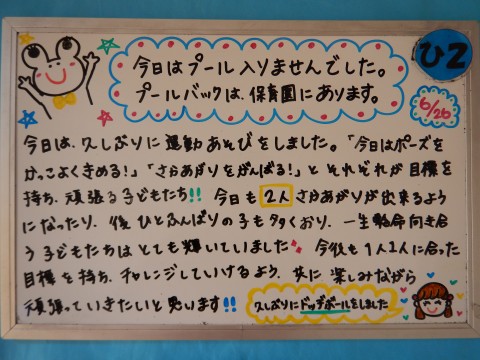 今日はプール入りませんでした。
プールバックは、保育園にあります。
ひ2
6/26
今日は、久しぶりに運動あそびをしました。「今日はポーズを
かっこよくきめる!」「さかあがりをがんばる!」とそれぞれが目標を
持ち、頑張る子どもたち!! 今日も2人さかあがりが出来るよう
になったり、後ひとふんばりの子も多くおり、一生懸命向き合
う子どもたちはとても輝いていました 今後も1人1人に合った
目標を持ち、チャレンジしていけるよう、共に楽しみながら
頑張っていきたいと思います!!
久しぶりにドッヂボールをしました